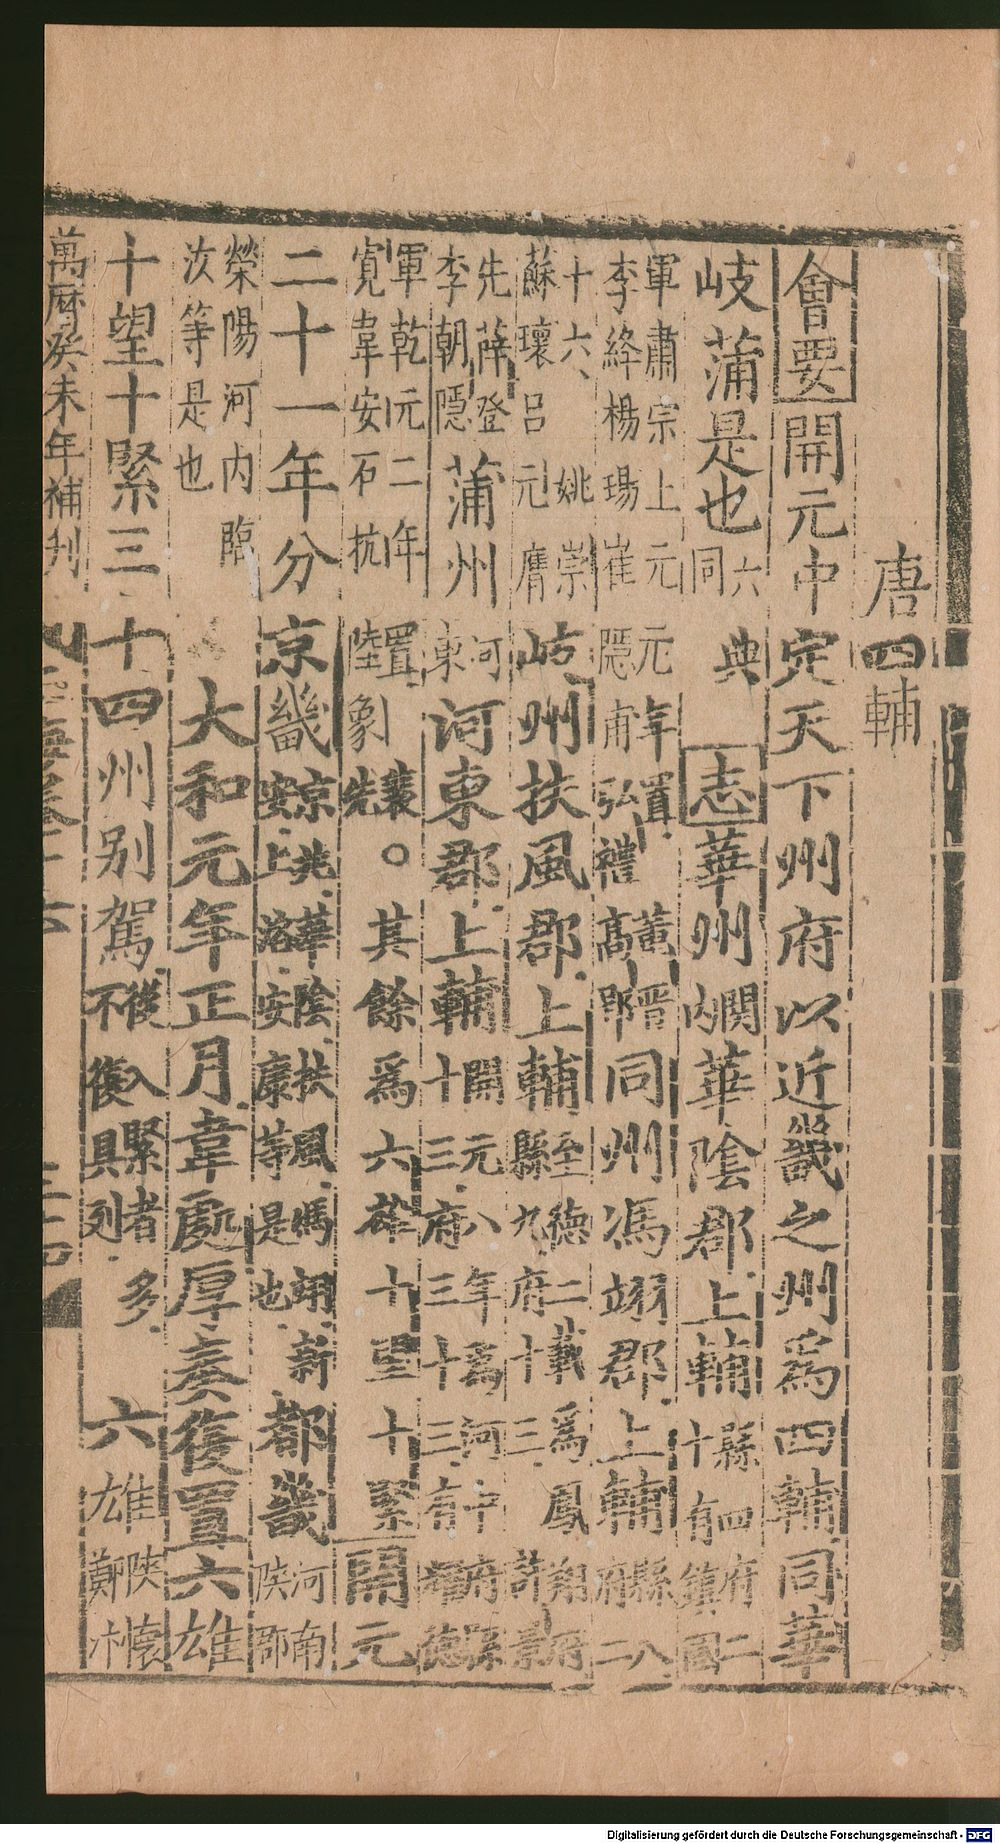 唐四輔
會要開元中定天下州府以近畿之州爲四輔同華
岐蒲是也六典同志華州關內華陰郡上輔縣四府二十有鎮國
軍肅宗上元元年置李絳楊瑒崔隱甫弘禮董晋高郢同州馮翊郡上輔縣八府二
十六姚崇蘇瓌呂元膺岐州扶風郡上輔至德二載爲鳳翔府縣九府十三
先薛登李朝隱蒲州河東河東郡上輔開元八年爲河中府縣十三府三十三有
軍乾元二年置寬韋安石抗陸象先襄。其餘爲六雄十望十緊開元
二十一年分京畿京兆華陰扶風馮翊新安上洛安康等是也都畿河南陝郡
滎陽河內臨汝等是也大和元年正月韋處厚奏復置六雄
十望十緊三十四州別駕後入緊者多不復具列六雄陝懷鄭汴
萬曆癸未年補刊